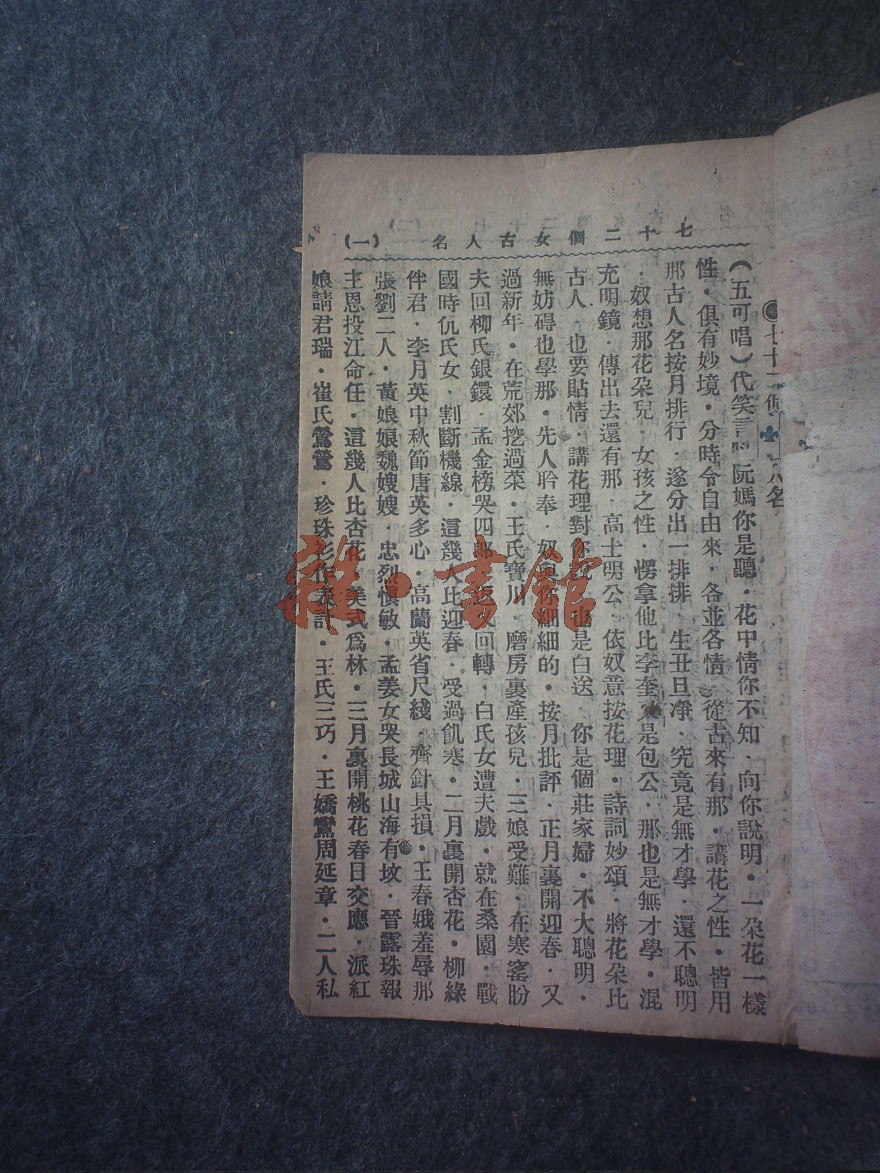 七十二個女古人名 (一)
(五可唱)代笑言 阮媽你是聽·花中情你不知·向你說明·一朵花一樣
性·俱有妙境·分時令自由來·各並各情·從古來有那·講花之性·皆用
那古人名按月排行·遂分出一排排·生丑旦凈·究竟是無才學·還不聰明
·奴想那花朵兒·女孩之性·愣拿他比李奎 是包公·那也是無才學·混
充明鏡·傳出去還有那·高士明公·依奴意按花理·詩詞妙頌·將花朵比
古人·也要貼情·講花理對你說·也是白送·你是個莊家婦·不大聰明·
無妨碍也學那·先人聆奉·奴與你細細的·按月批評·正月裏開迎春·又
過新年·在荒郊挖過菜·王氏寶川·磨房裏產孩兒·三娘受難·在寒窰盼
夫回柳氏銀鐶·孟金榜哭四郎 回轉·白氏女遭夫戲·就在桑園·戰
國時仉氏女·割斷機線·這幾人比迎春·受過飢寒·二月裏開杏花·柳綠
伴君·李月英中秋節唐英多心·高蘭英省尺綫·齊針具損·王春娥羞辱那
張劉二人·黃娘娘魏嫂嫂·忠烈慎敏·孟姜女哭長城山海有坟·晉露珠報
主恩投江命任·這幾人比杏花·美式為林·三月裏開桃花春日交應·派紅
娘請君瑞·崔氏鶯鶯·珍珠衫作表記·王氏三巧·王嬌鸞周延章·二人私
雜·書館